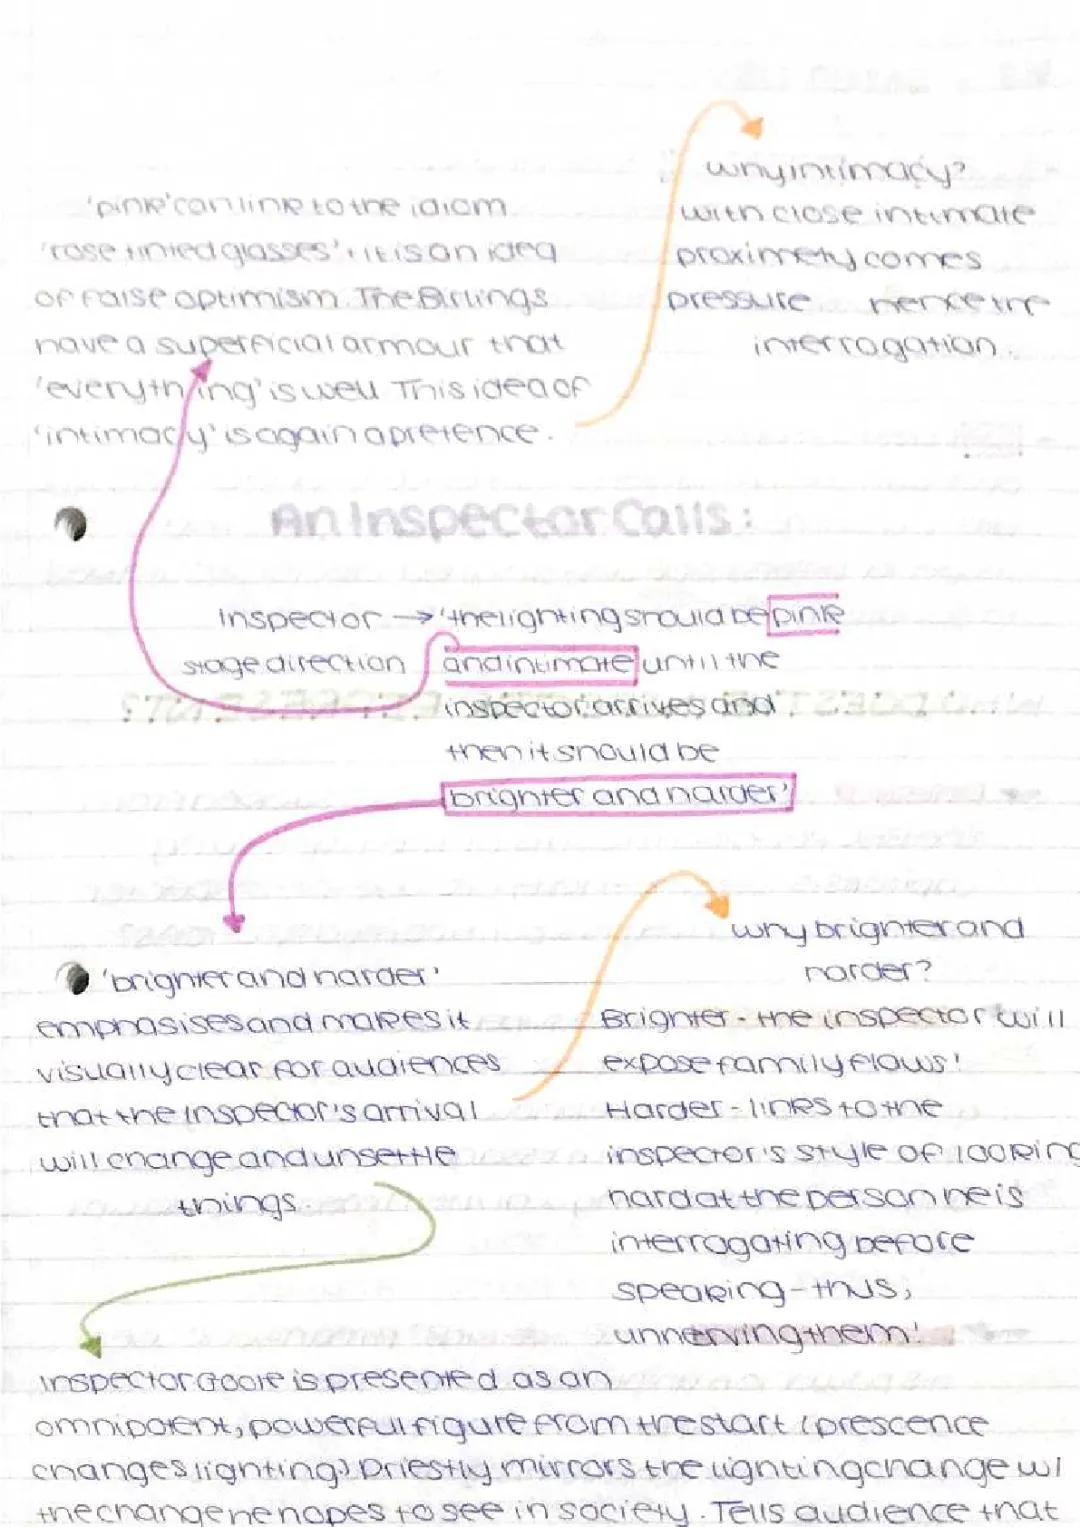 'pink' can link to the idiom
'rose tinted glasses', it is an idea
of false optimism. The Birlings
have a superficial armour that
'everything' is well. This idea of
'intimacy' is again a pretence.
why intimacy?
with close intimate
proximety comes
pressure hence the
interrogation.
An Inspector Calls:
Inspector → 'the lighting should be pink
stage direction and intimate until the
inspector arrives and
then it should be
brighter and harder'
'brighter and harder'
emphasises and makes it
visually clear for audiences
that the Inspector's arrival
will change and unsettle
things.
why brighter and
harder?
Brighter - the inspector will
expose family flaws!
Harder - links to the
inspector's style of looking
hard at the person he is
interrogating before
speaking - thus,
unnerving them!
Inspector Goole is presented as an
omnipotent, powerful figure from the start (prescence
changes lighting) Priestly mirrors the lighting change w/
the change he hopes to see in society. Tells audience that